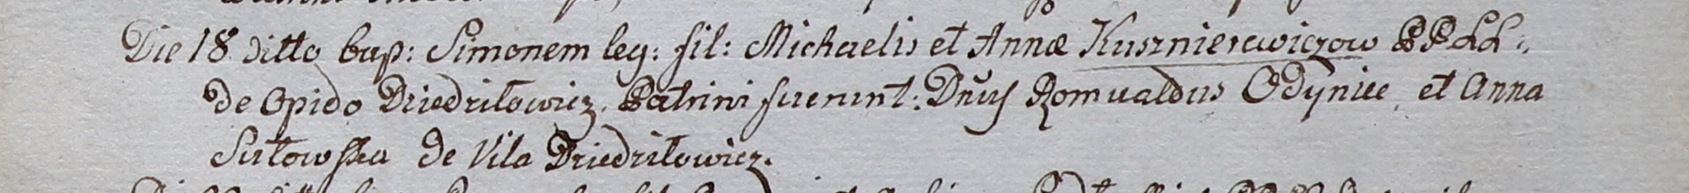 Die 18 ditto bap: Simonem leg: fil: Michaelis et Annæ Kusznierewiczow PPLL:
de Opido Dziedziłowicz. Patrini fuerunt: Dnus Romualdus Odyniec et Anna
Sutowska de Vila Dziedziłowicz.